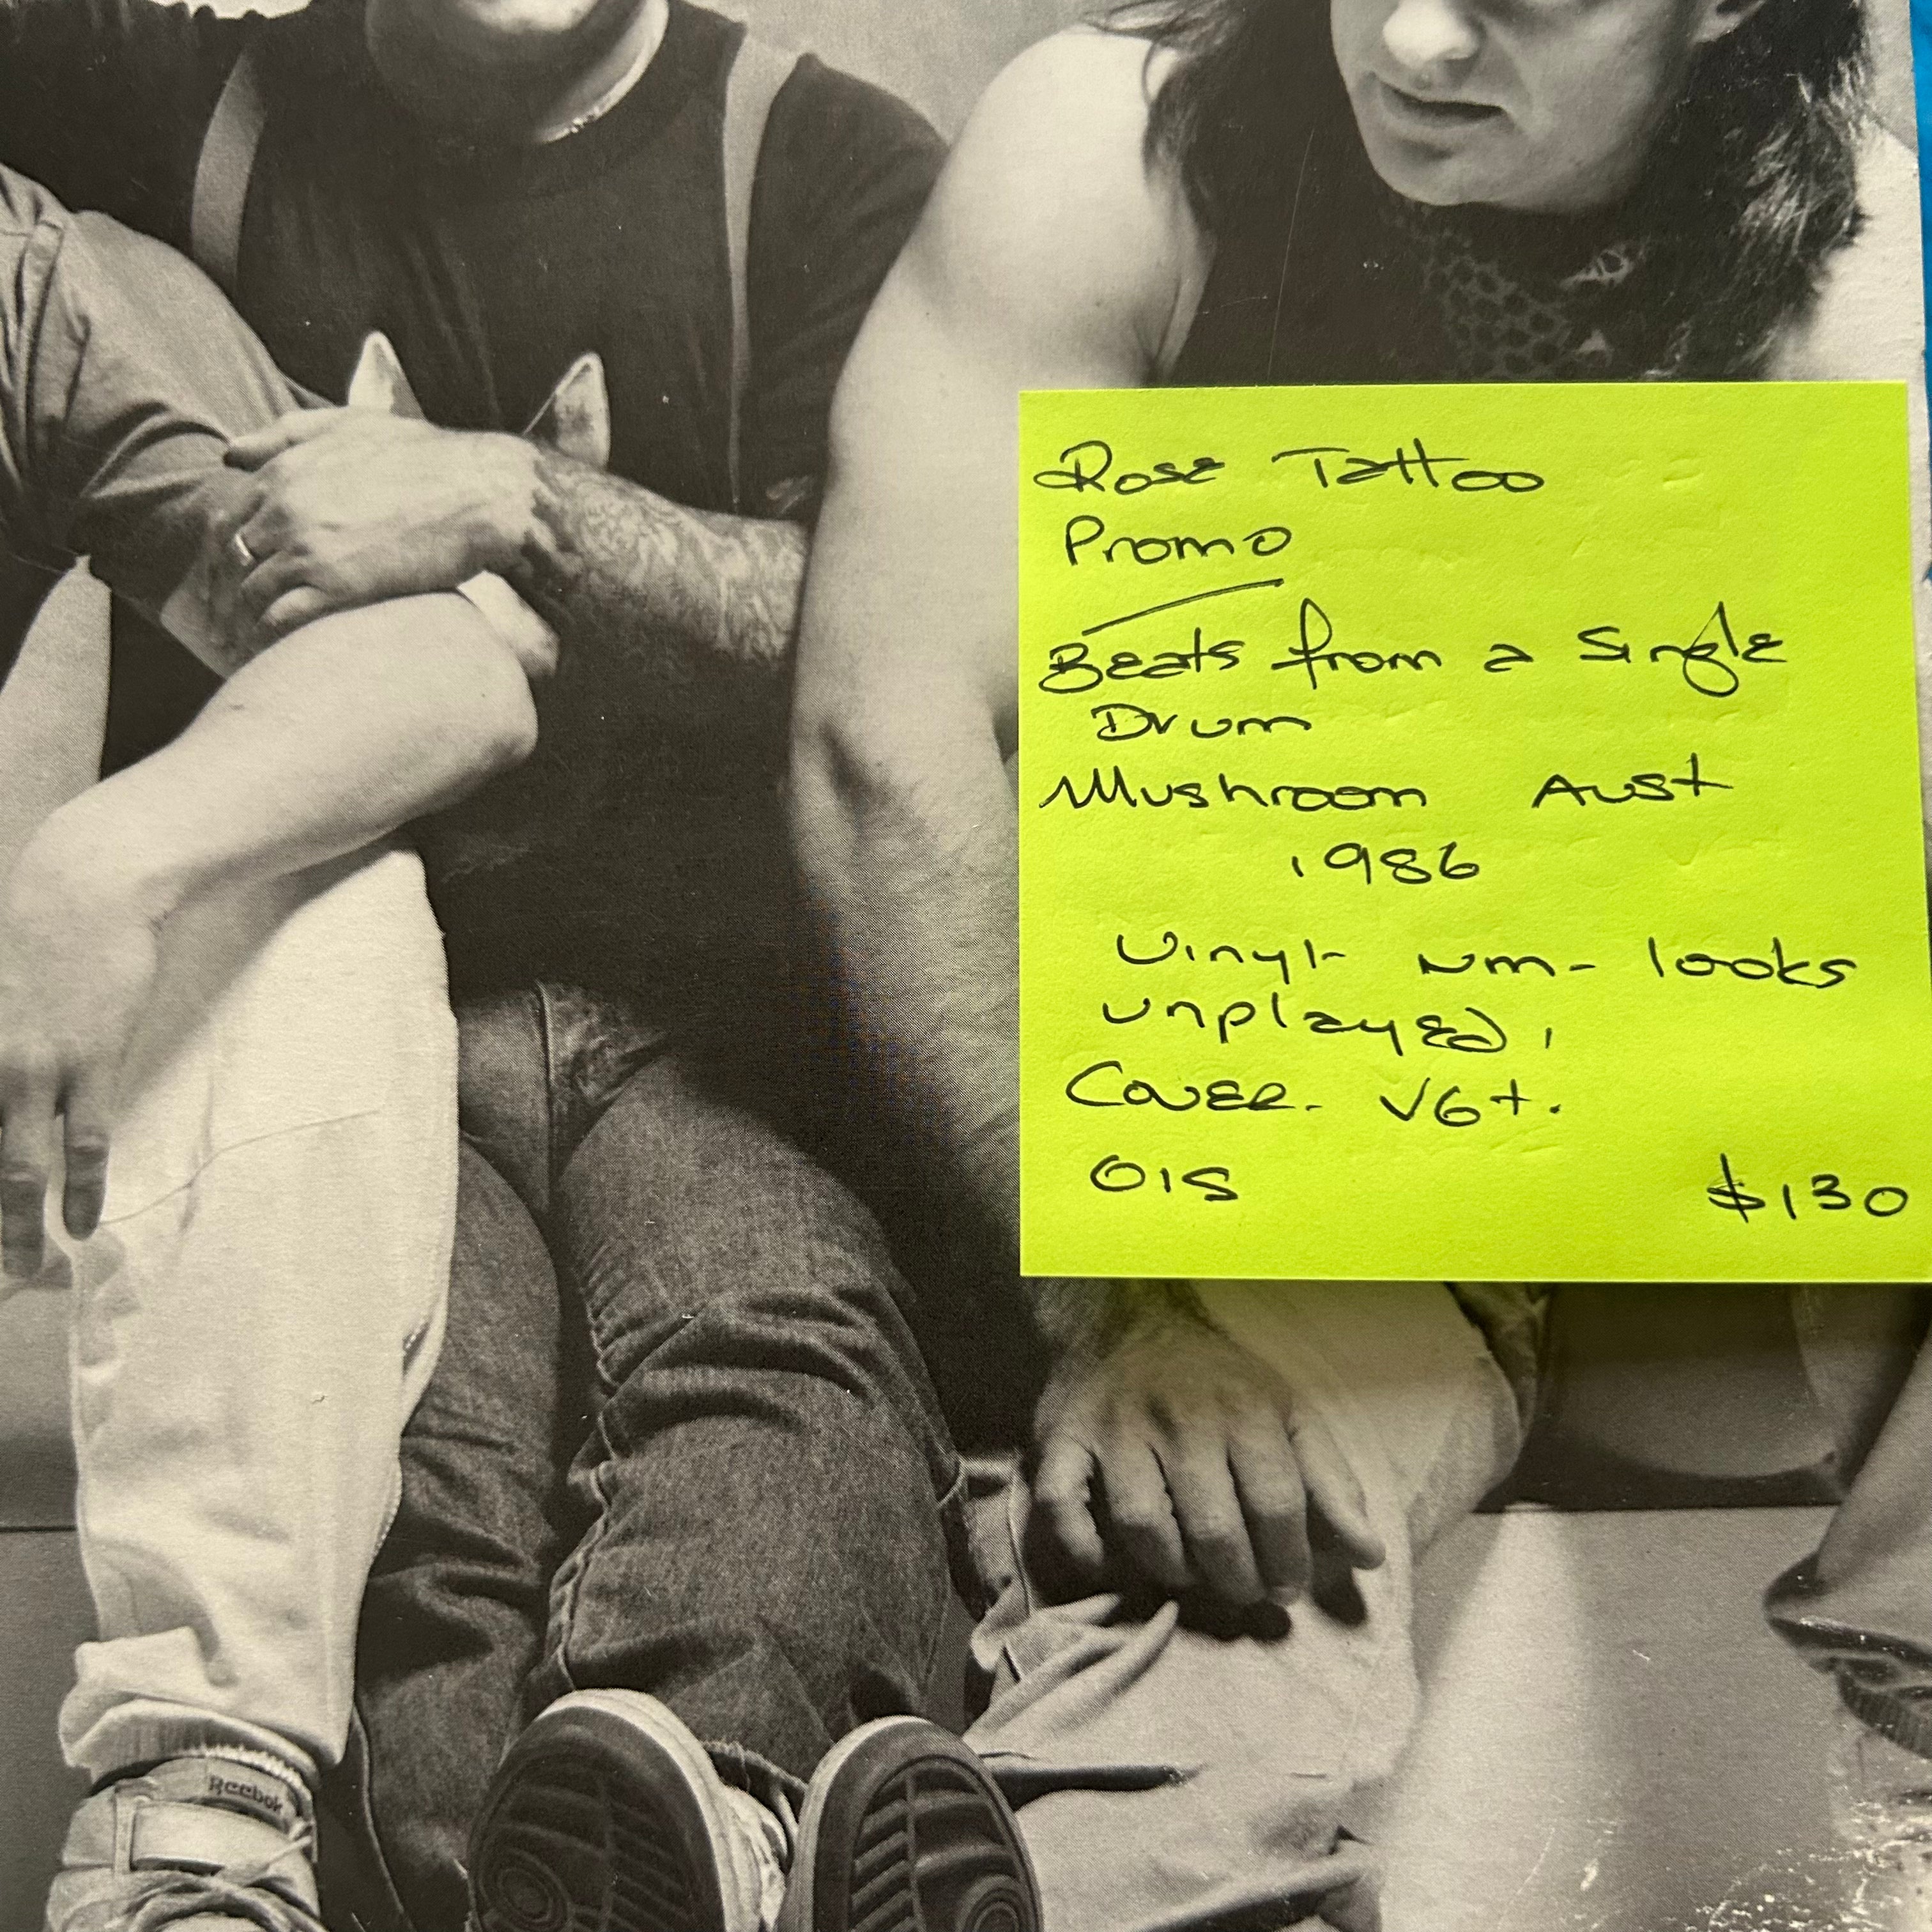 Rose Tattoo
Promo
Beats from a Single
Drum
Mushroom Aust
1986
Vinyl- NM- looks
unplayed,
Cover. VG+.
OIS $130
Reebok